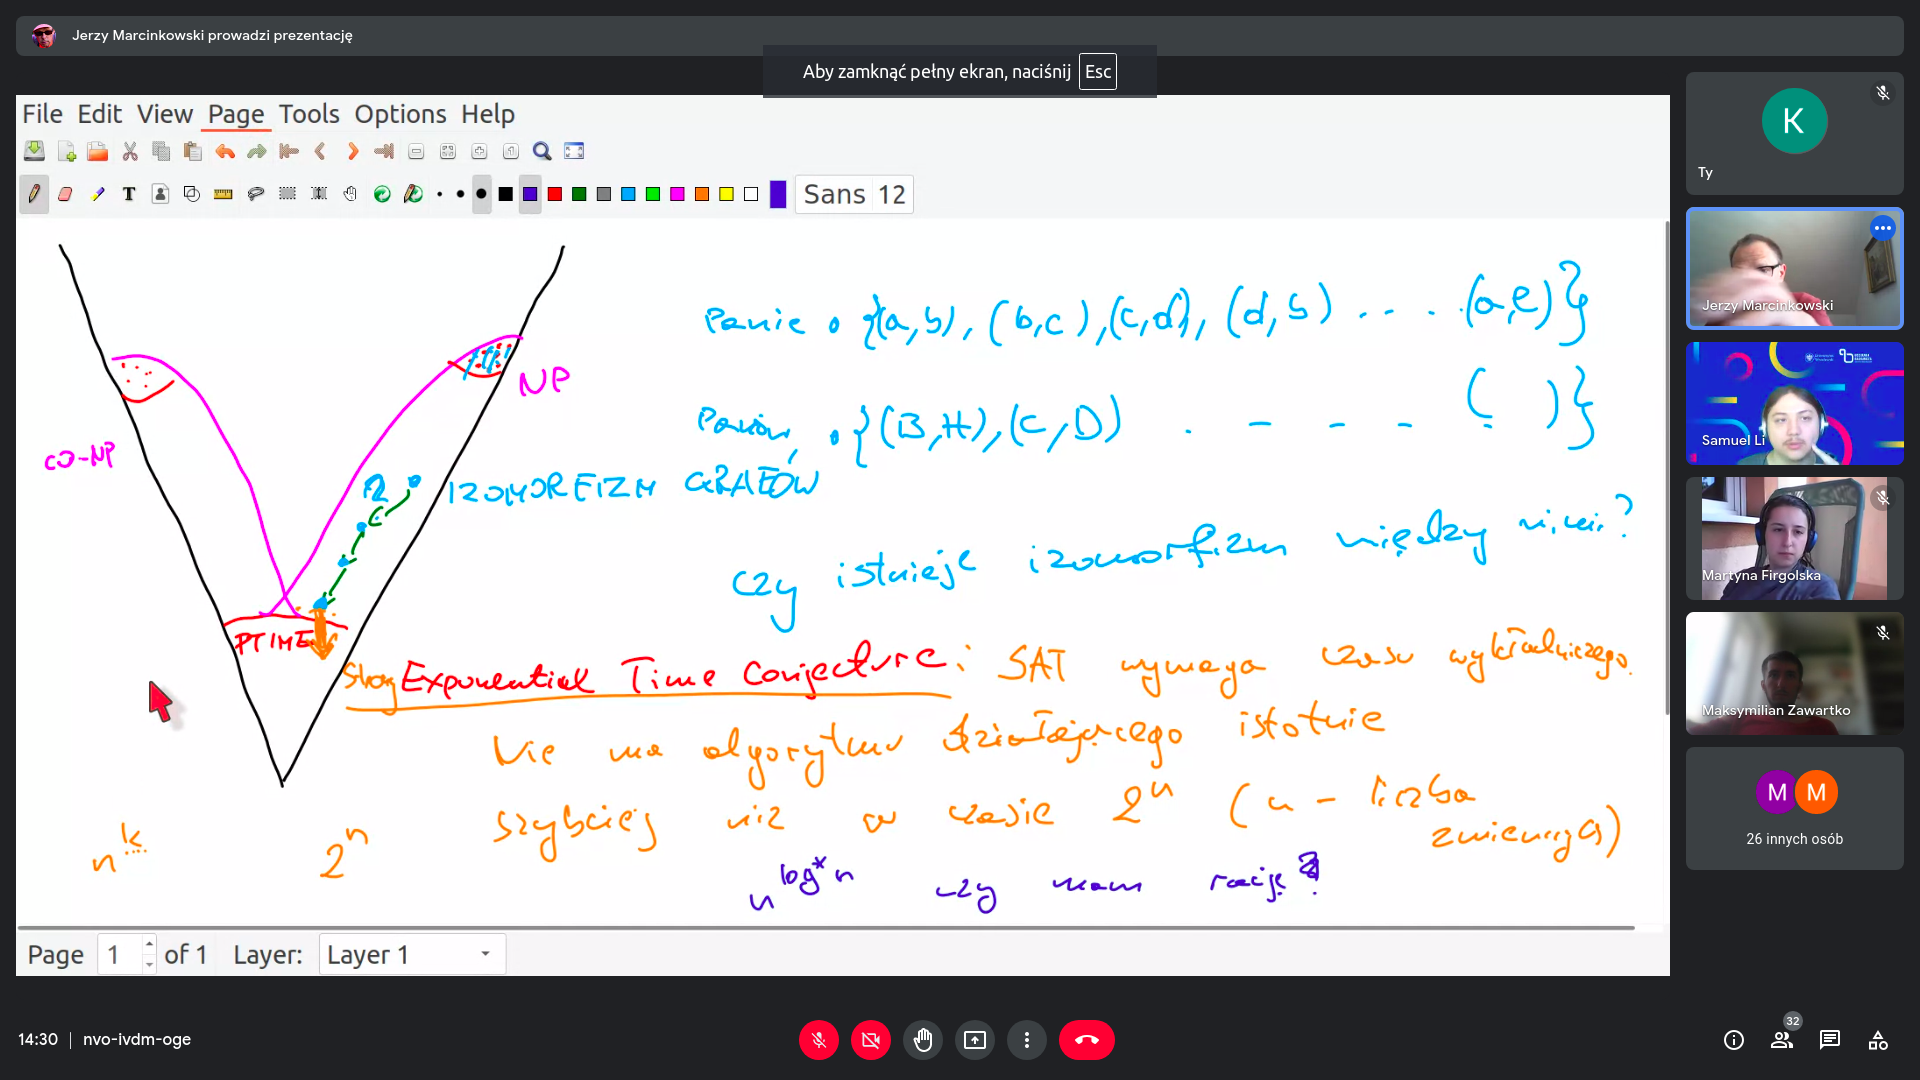 Jerzy Marcinkowski prowadzi prezentację
Aby zamknąć pełny ekran, naciśnij Esc
File Edit View Page Tools Options Help
T Sans 12
Panie • {(a,b), (b,c), (c,d), (d,b) ... (a,e)}
Panów • {(B,H),(C,D) . - - - ( )}
NP
co-NP
IZOMORFIZM GRAFÓW
czy istnieje izomorfizm między nimi?
PTIME
Strong Exponential Time Conjecture: SAT wymaga czasu wykładniczego.
Nie ma algorytmu działającego istotnie
szybciej niż w czasie 2^n (n - liczba zmiennych)
n^k 2^n
n^log* n czy mam rację?
Page 1 of 1 Layer: Layer 1
K
Ty
Jerzy Marcinkowski
Samuel Li
Martyna Firgolska
Maksymilian Zawartko
M M
26 innych osób
14:30 | nvo-ivdm-oge
32